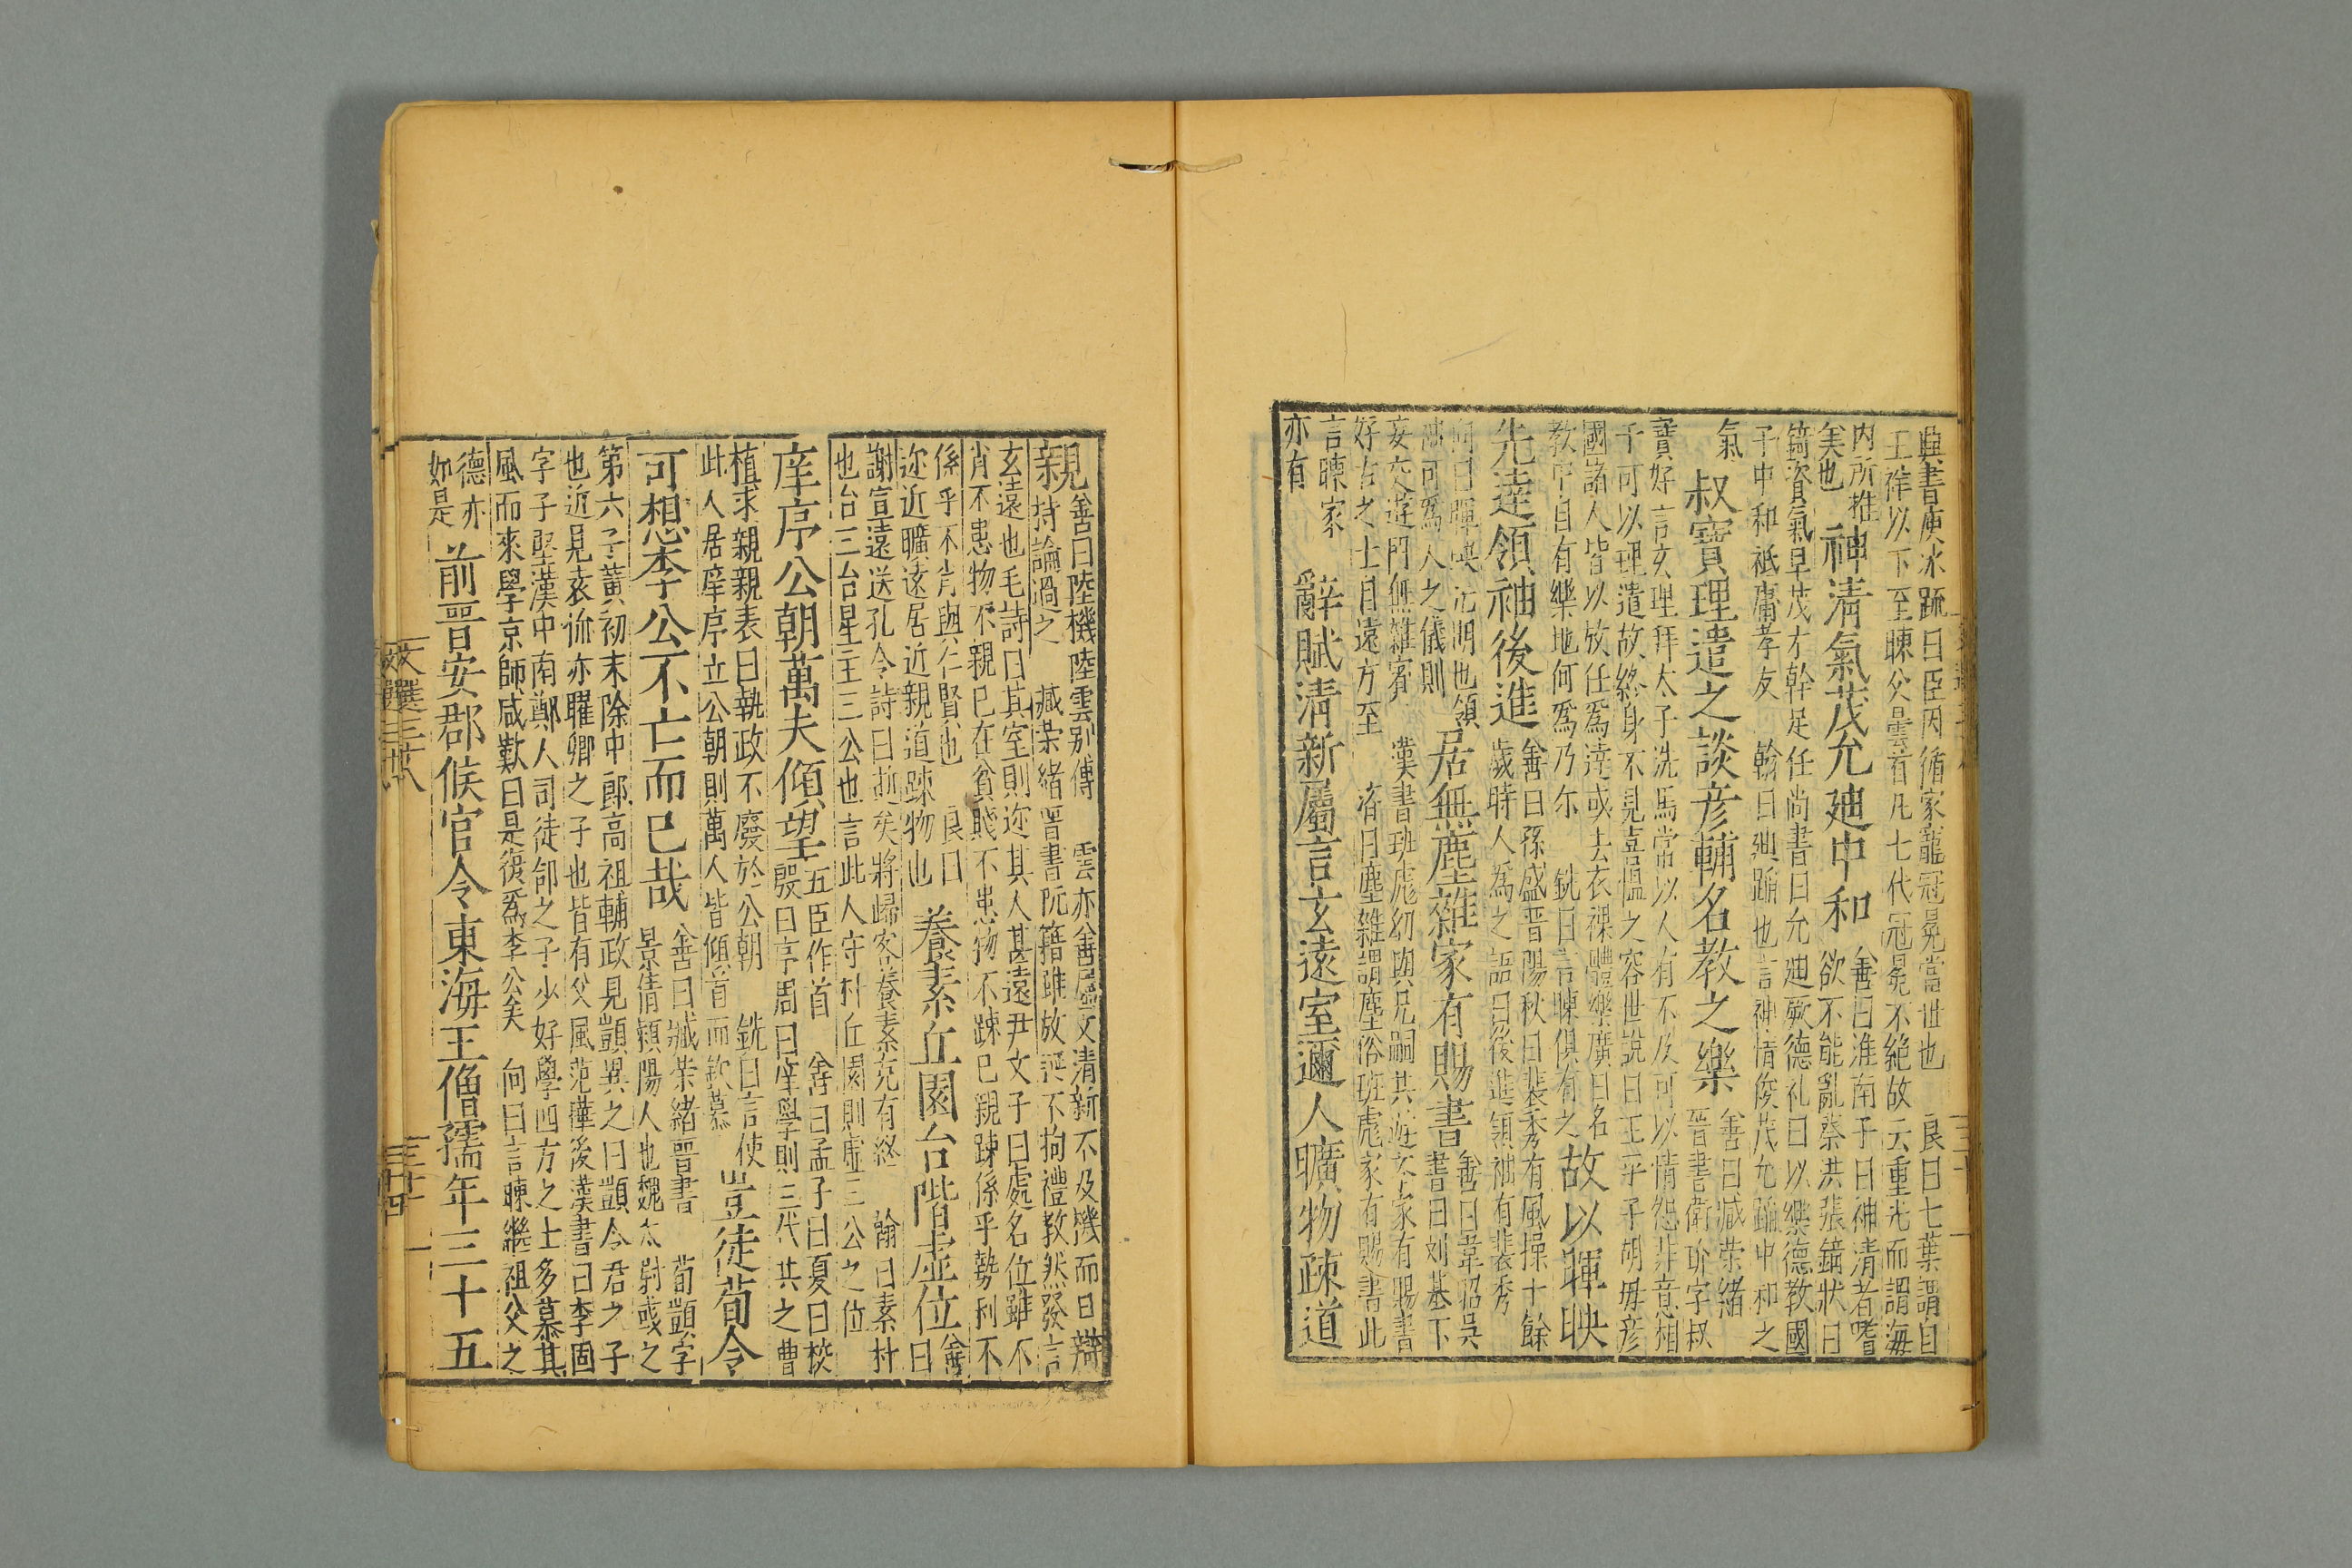 與書庾冰䟽曰臣因循家寵冠冕當世也　良曰七葉謂自
王祥以下至暕父曇首凡七代冠冕不絶故云重光而謂海
內所推
矣也
神清氣茂允廸中和
善曰淮南子曰神清者嗜
欲不能亂蔡洪張鏑狀曰
鏑資氣早茂才幹足任尚書曰允廸厥德礼曰以樂德教國
子中和祇庸孝友　翰曰廸蹈也言神情俊茂允蹈中和之
氣
叔寶理遣之談彦輔名教之樂
善曰臧荣緒
晋書衛玠字叔
寶好言玄理拜太子洗馬常以人有不及可以情恕非意相
干可以理遣故終身不見喜愠之容世説曰王平子胡毋彦
國諸人皆以放任爲達或去衣裸體樂廣曰名
教中自有樂地何爲乃尓　銑曰言暕俱有之
故以暉映
先達領袖後進
善曰孫盛晋陽秋曰裴秀有風操十餘
歲時人爲之語曰後進領袖有裴秀
向曰暉映
也領
袖可爲人之儀則
居無塵雜家有賜書
善曰韋昭吳
書曰刘基不
妄交遊門無雜賓　漢書班彪幼與兄嗣共遊李家有賜書
好古之士自遠方至　濟曰塵雜謂塵俗班彪家有賜書此
言暕家
亦有
辭賦清新屬言玄遠室邇人曠物疎道
親
善曰陸機陸雲别傳　雲亦善屬文清新不及機而口辯
持論過之　臧荣緒晋書阮籍雖放誕不拘禮教然發言
玄遠也毛詩曰其室則迩其人甚遠尹文子曰處名位雖不
肖不患物不親已在貧賤不患物不踈已親踈係乎勢利不
係乎不肖與仁賢也　良曰
迩近曠遠居近親道疎物也
養素丘園台階虚位
善
曰
謝宣遠送孔令詩曰逝矣將歸客養素克有終　翰曰素朴
也台三台星主三公也言此人守朴丘園則虚三公之位
庠序公朝萬夫傾望
五臣作首　善曰孟子曰夏曰校
殷曰序周曰庠學則三代共之曹
植求親親表曰執政不廢於公朝　銑曰言使
此人居庠序立公朝則萬人皆傾首而欽慕
豈徒荀令
可想李公不亡而已哉
善曰臧荣緒晋書　荀顗字
景倩潁陽人也魏太尉彧之
第六子黄初末除中郎高祖輔政見顗異之曰顗令君之子
也近見袁侃亦曜卿之子也皆有父風范曄後漢書曰李固
字子堅漢中南鄭人司徒郃之子少好學四方之士多慕其
風而來學京師咸歎曰是復爲李公矣　向曰言暕繼祖父之
德亦
如是
前晋安郡候官令東海王僧孺年三十五
文選三十八
三十四